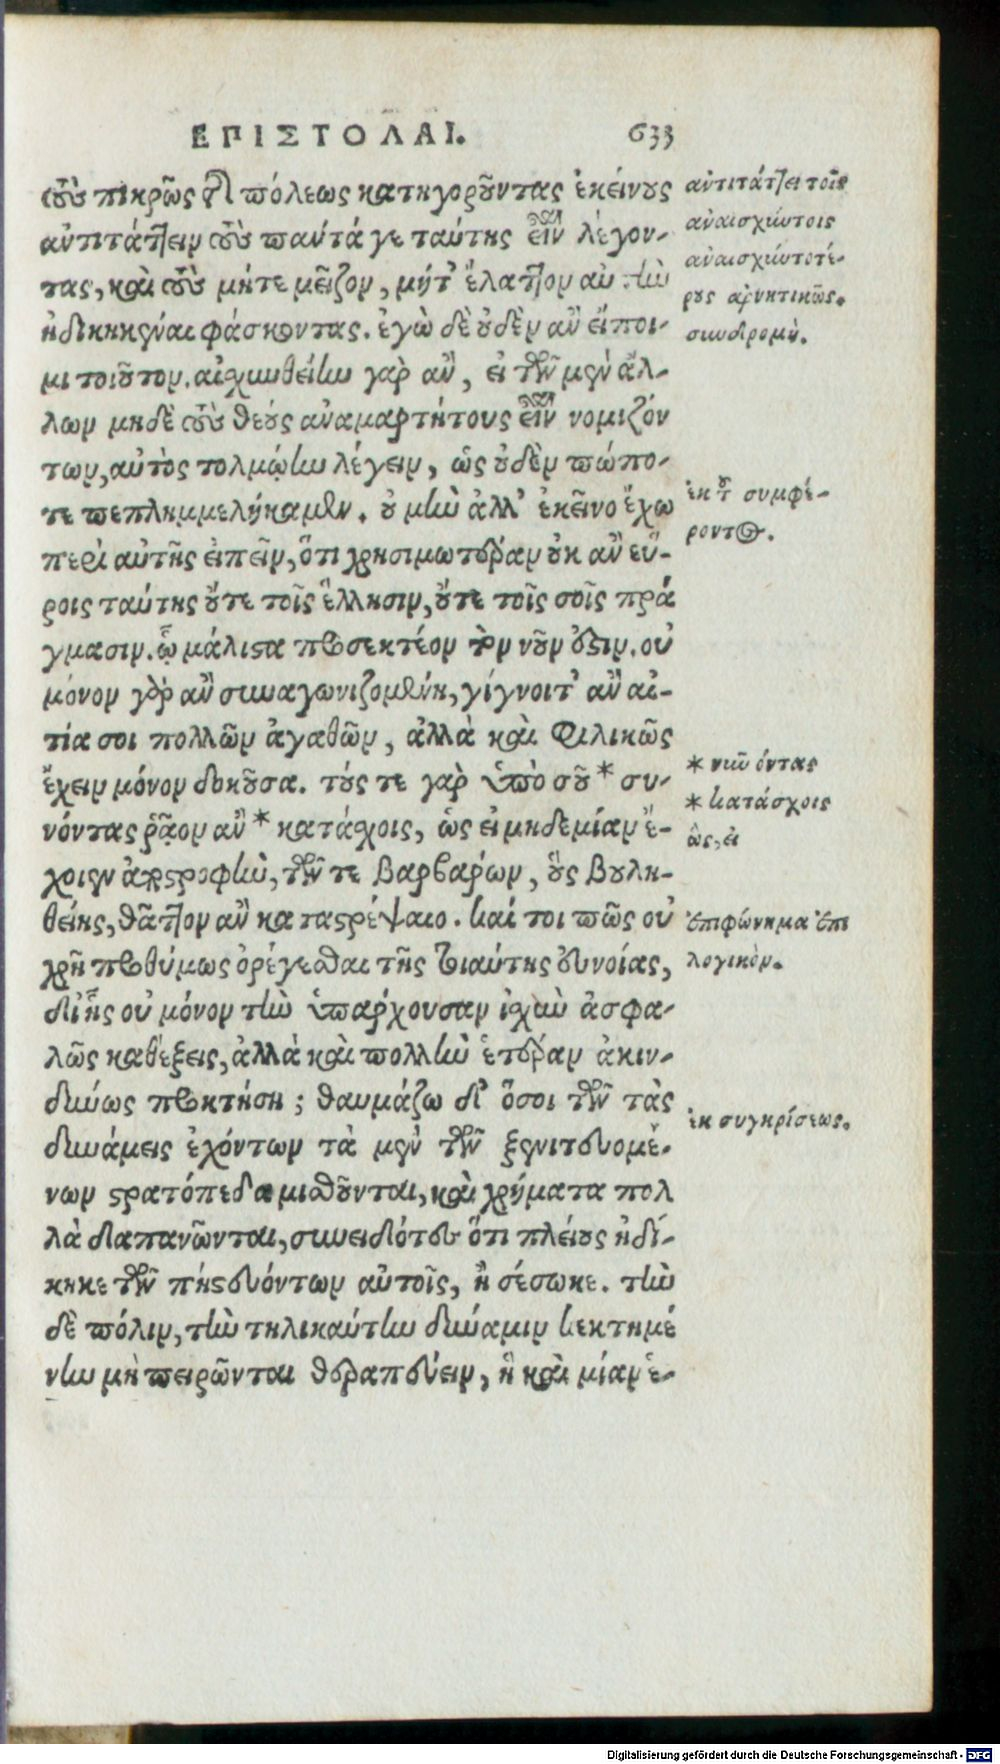 ΕΠΙΣΤΟΛΑΙ. 633
τοὺς πικρῶς τῆς πόλεως κατηγοροῦντας ἐκείνους
ἀντιτάττειν τοὺς πάντά γε ταύτης εἶναι λέγον-
τας, καὶ τοὺς μήτε μεῖζον, μήτ' ἔλαττον αὐτὴν
ἠδικηκέναι φάσκοντας. ἐγὼ δὲ οὐδὲν ἂν εἴποι-
μι τοιοῦτον. αἰσχυνθείην γὰρ ἂν, εἰ τῶν μὲν ἄλ-
λων μηδὲ τοὺς θεοὺς ἀναμαρτήτους εἶναι νομιζόν
των, αὐτὸς τολμῴην λέγειν, ὡς οὐδὲν πώπο-
τε πεπλημμελήκαμεν. οὐ μὴν ἀλλ' ἐκεῖνο ἔχω
περὶ αὐτῆς εἰπεῖν, ὅτι χρησιμωτέραν οὐκ ἂν εὕ-
ροις ταύτης οὔτε τοῖς ἕλλησιν, οὔτε τοῖς σοῖς πρά
γμασιν. ᾧ μάλιστα προσεκτέον τὸν νοῦν ἐστιν. οὐ
μόνον γὰρ ἂν συναγωνιζομένη, γίγνοιτ' ἂν αἰ-
τία σοι πολλῶν ἀγαθῶν, ἀλλὰ καὶ φιλικῶς
ἔχειν μόνον δοκοῦσα. τούς τε γὰρ ὑπὸ σοῦ * συ-
νόντας ῥᾷον ἂν * κατάσχοις, ὡς εἰ μηδεμίαν ἔ-
χοιεν ἀποστροφὴν, τῶν τε βαρβάρων, οὓς βουλη-
θείης, θᾶττον ἂν καταστρέψαιο. καί τοι πῶς οὐ
χρὴ προθύμως ὀρέγεσθαι τῆς τοιαύτης εὐνοίας,
δι' ἧς οὐ μόνον τὴν ὑπάρχουσαν ἰσχὺν ἀσφα-
λῶς καθέξεις, ἀλλὰ καὶ πολλὴν ἑτέραν ἀκιν-
δύνως προκτήσῃ; θαυμάζω δ' ὅσοι τῶν τὰς
δυνάμεις ἐχόντων τὰ μὲν τῶν ξενιτευομέ-
νων στρατόπεδα μισθοῦνται, καὶ χρήματα πολ
λὰ δαπανῶνται, συνειδότες ὅτι πλείους ἠδί-
κηκε τῶν πιστευόντων αὐτοῖς, ἢ σέσωκε. τὴν
δὲ πόλιν, τὴν τηλικαύτην δύναμιν κεκτημέ
νην μὴ πειρῶνται θεραπεύειν, ἣ καὶ μίαν ἑ-
ἀντιτάττει τοῖς
ἀναισχύντοις
ἀναισχυντοτέ-
ρους ἀρνητικῶς.
συνδρομὴ.
ἐκ τοῦ συμφέ-
ροντος.
* νῦν ὄντας
* κατάσχοις
ὡς, εἰ
ἐπιφώνημα ἐπι
λογικὸν.
ἐκ συγκρίσεως.
Digitalisierung gefördert durch die Deutsche Forschungsgemeinschaft - DFG